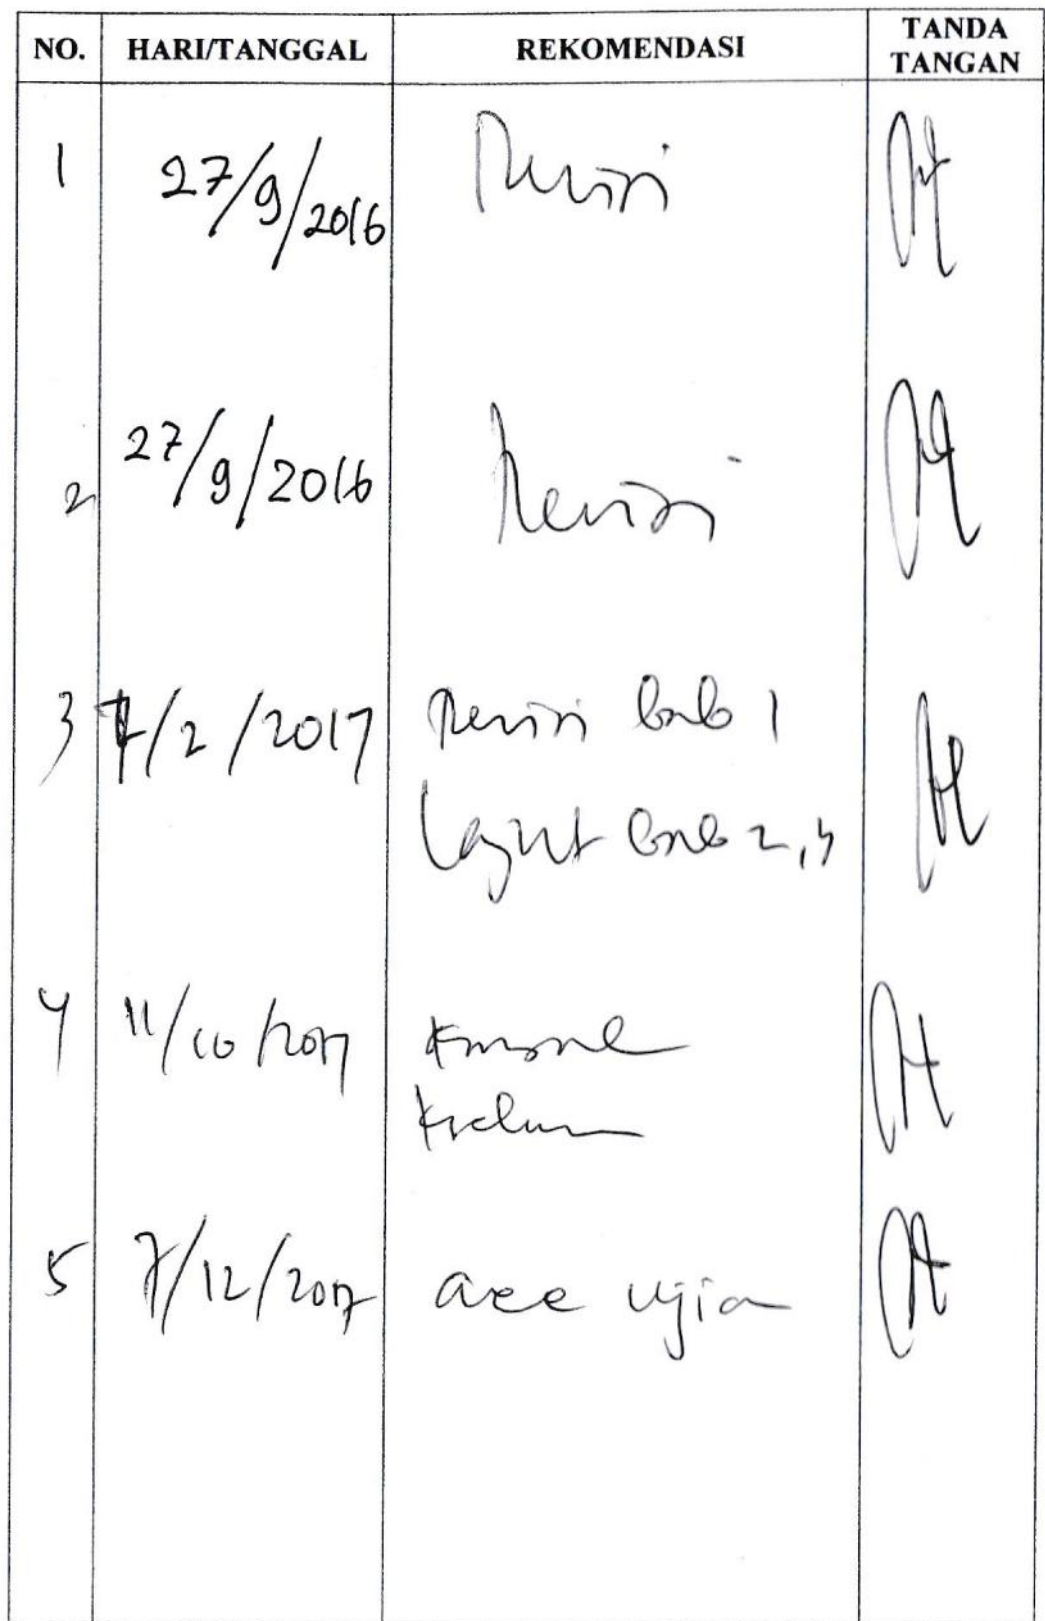 NO. HARI/TANGGAL REKOMENDASI TANDA TANGAN
1 27/9/2016 Revisi
2 27/9/2016 Revisi
3 7/2/2017 Revisi bab 1
Lanjut bab 2,3
4 11/10/2017
5 7/12/2017 acc ujian